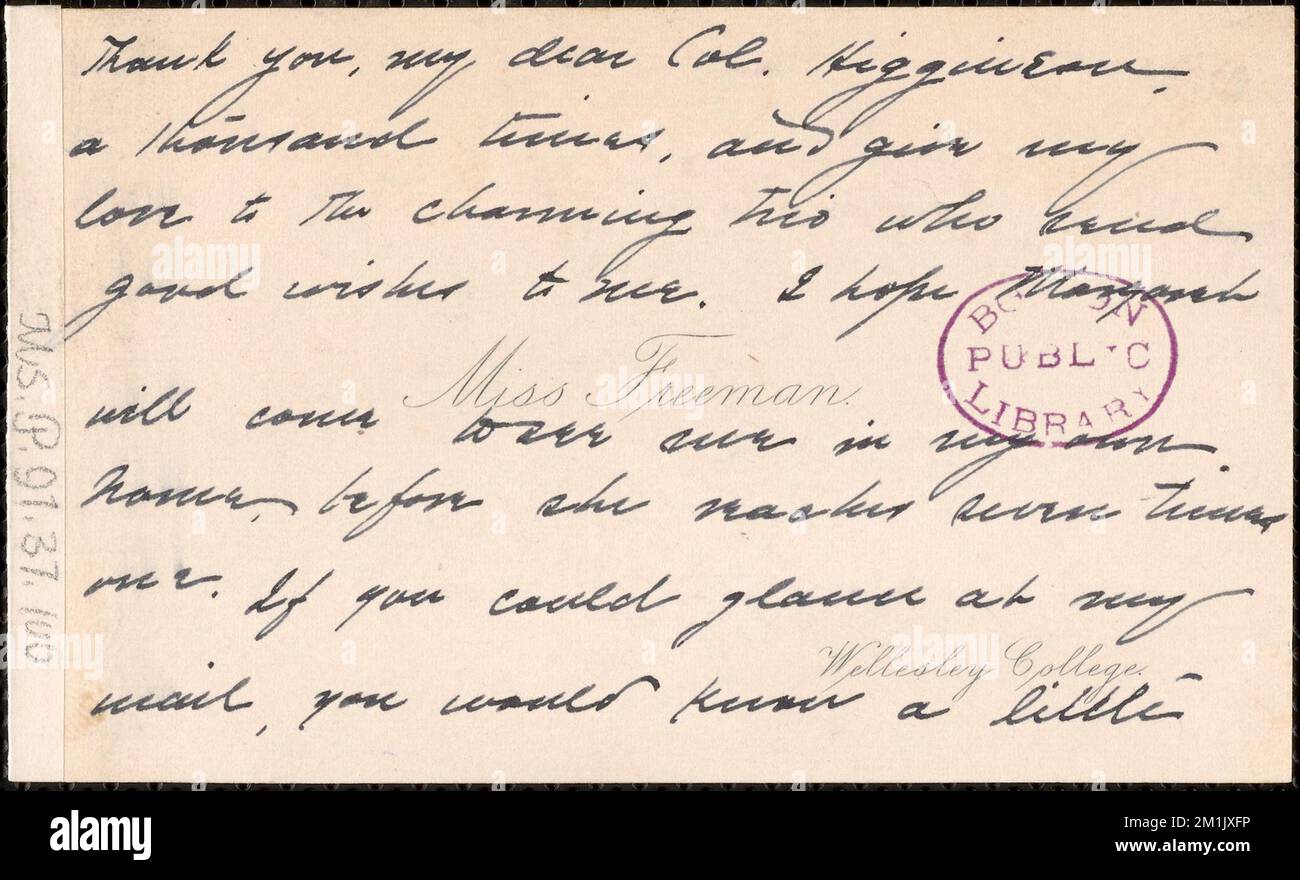 Thank you, my dear Col. Higginson,
a thousand times, and give my
love to the charming trio who send
good wishes to me. I hope Margaret
BOSTON
PUBLIC
LIBRARY
Miss Freeman.
will come to see me in my own
home, before she reaches seven times
one. If you could glance at my
Wellesley College.
mail, you would know a little
MS. P. 91. 37. 100
alamy
Image ID: 2M1JXFP
www.alamy.com